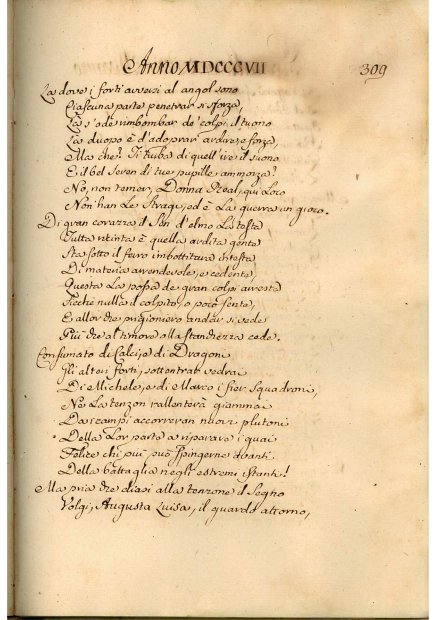 Anno MDCCCVII
309
La dove i forti avversi al angol sono
Ciascuna parte penetrar si sforza,
La s'ode rimbombar de' colpi il tuono
La duopo è d'adoprar ardire e forza,
Ma che? Ti turba di quell'ire il suono
E il bel seren di tue pupille ammorza?
No, non temer, Donna Real, qui Loco
Non han Le Stragi, ed è La guerra un gioco.
Di gran corazza il Sen d'elmo La testa
Tutta è quella ardita gente
Sta sotto il ferro imbottitura intesta
Di materia arrendevole, e cedente,
Questa La possa de gran colpi arresta
Sicchè nulla il colpito, o poco sente,
E allor che prigioniero andar si vede
Più che al timore alla stanchezza cede.
Consumato di Calci, e di Dragoni
Gli altri forti, sottentrar vedrai
Di Michele, e di Marco i fier Squadroni,
Ne La tenzon rallenterà giammai
Da i campi accorreran nuovi plutoni
Della Lor parte a riparare i guai
Felice chi può più spingerne avanti
Della battaglia negli estremi istanti!
Ma pria che diasi alla tenzone il Segno
Volgi, Augusta Luisa, il guardo attorno,